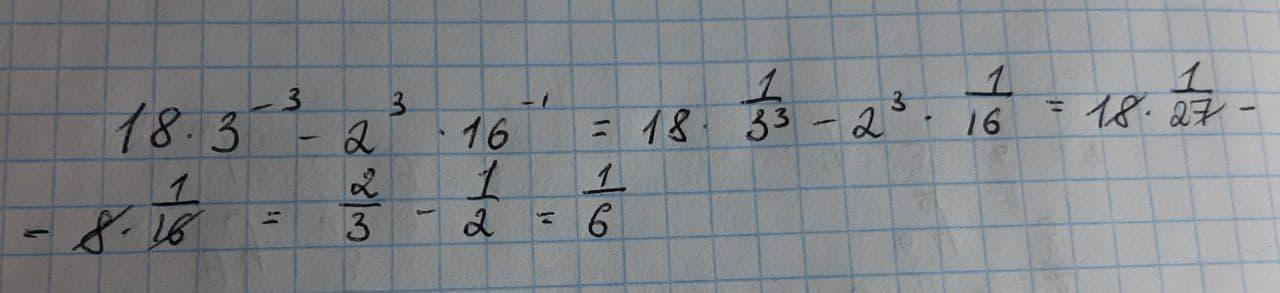 18 · 3⁻³ - 2³ · 16⁻¹ = 18 · 1/3³ - 2³ · 1/16 = 18 · 1/27 -
- 8 · 1/16 = 2/3 - 1/2 = 1/6